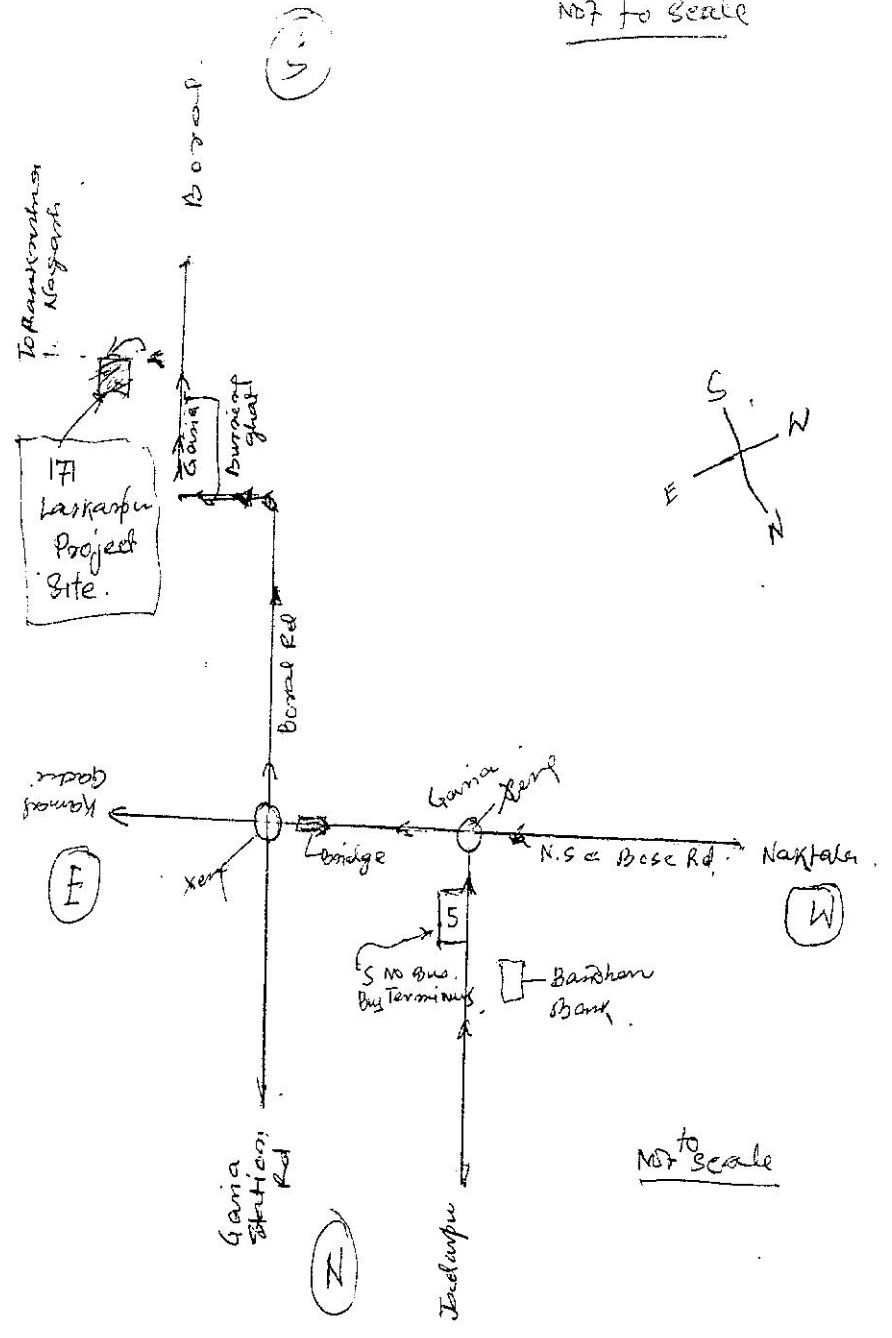 Not to Scale
S
Boral.
To Ramkrishna
Nagar
Garia
Burning
ghat
171
Laskarpur
Project
Site.
S
W
E
N
Boral Rd
Kamal
Gachi
Garia
Xeng
Bridge
N.S.C Bose Rd.
Naktala.
Xeng
E
W
5
5 No Bus.
Bus Terminus
Bandhan
Bank.
Garia
Station
Rd
Not to Scale
N
Jadavpur